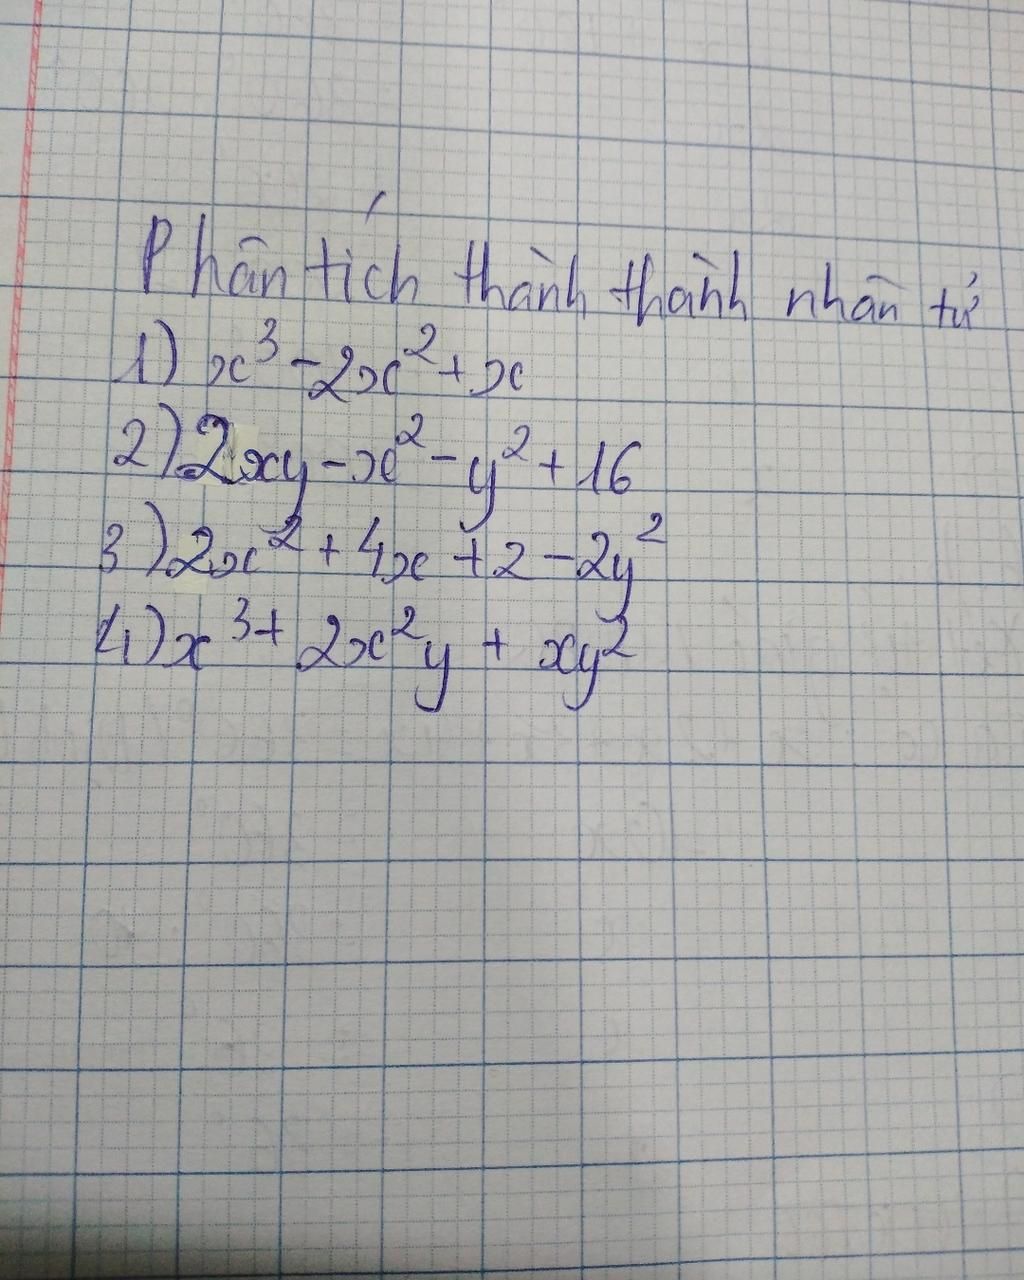 Phân tích thành thành nhân tử
1) x³ - 2x² + x
2) 2xy - x² - y² + 16
3) 2x² + 4x + 2 - 2y²
4) x³ + 2x²y + xy²